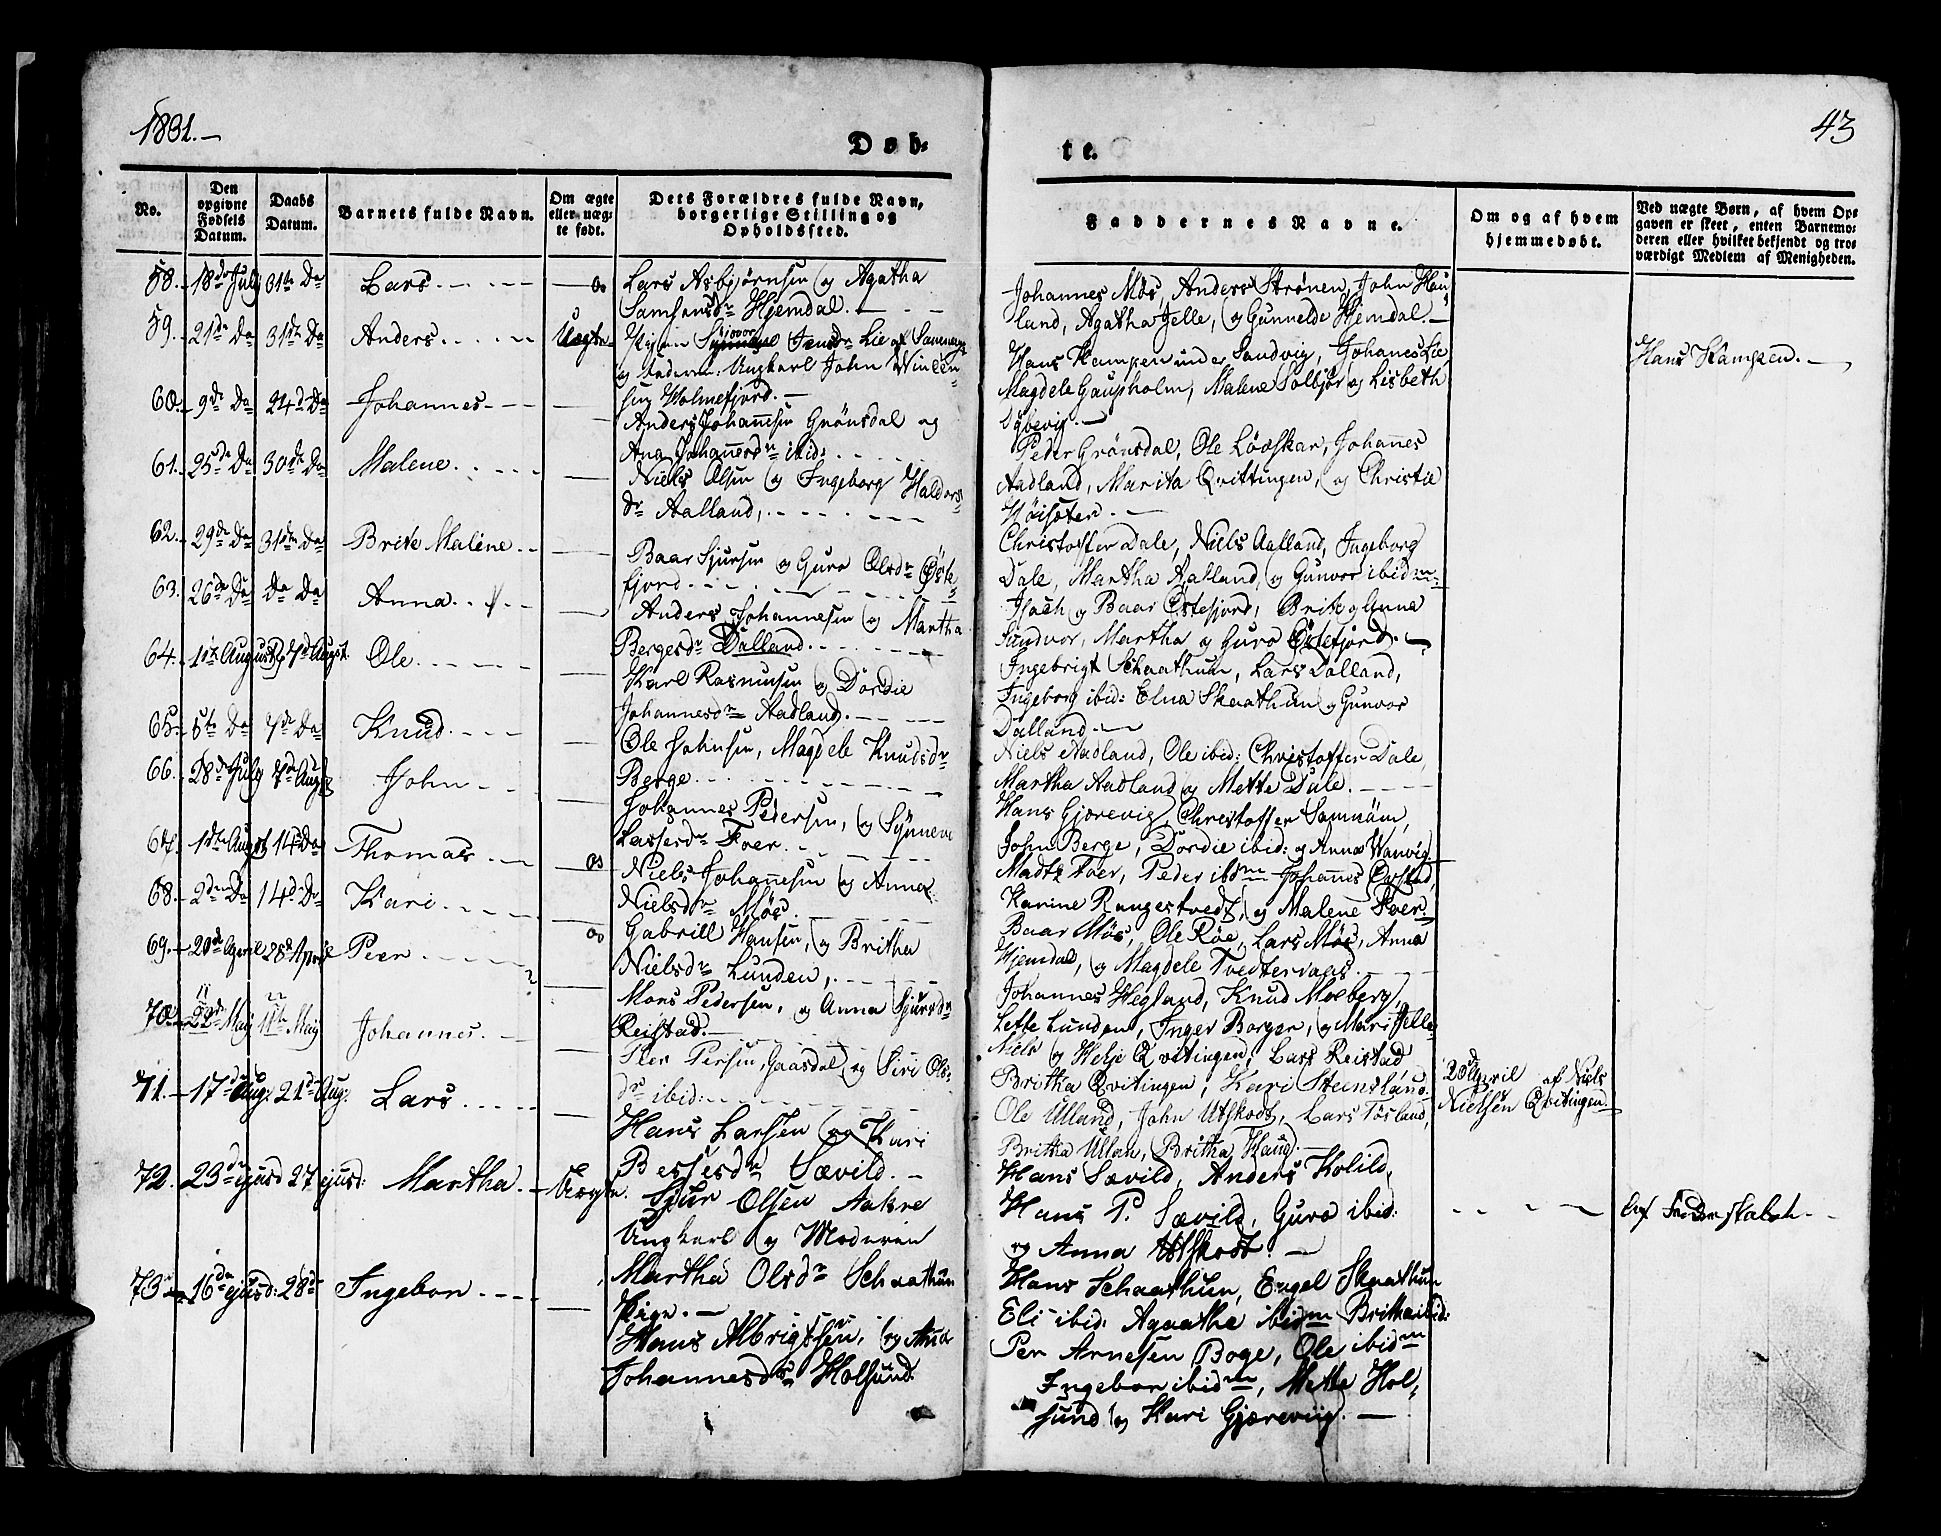 1831.
43
Døb-
te.
No.
Den opgivne Fødsels Datum.
Daabs Datum.
Barnets fulde Navn.
Om ægte eller uægte født.
Dets Forældres fulde Navn, borgerlige Stilling og Opholdssted.
Faddernes Navne.
Om og af hvem hjemmedøbt.
Ved uægte Børn, af hvem Opgaven er skeet, enten Barnemoderen eller hvilket bekjendt og troværdigt Medlem af Menigheden.
58. 18de July 31te Do Lars
Lars Asbjørnsen og Agatha
Samsonsdr Hjemdal.
Johannes Mös, Anders Strönen, John Hau-
land, Agatha Jelle, og Gunnelde Hjemdal.
59. 21de Do 31te Do Anders Uægte
Pigen Jensdr Lie
Ungkarl John Vincen-
sen Holmefjord.
Hans Kempen under Sandvig, Johanes Lie
Magdele Gaupholm, Malene Solbjør og Lisbeth
Hans Kampen.
60. 9de Do 24de Do Johannes
Anders Johannesen Grönsdal og
Ana Johannesdr ibid:
Peder Grönsdal, Ole Lödskar, Johannes
Aadland, Marita Qvittingen, og Christie
Höisæter.
61. 25de Do 30te Do Malene
Niels Olsen og Ingeborg Haldors-
dr Aalland,
Christoffer Dale, Niels Aalland, Ingeborg
Dale, Martha Aalland, og Gunvor ibidm
62. 29de Do 31te Do Brite Malene
Baar Sjursen og Guro Olsdr Öste-
fjord.
og Baar Östefjord, Brite og Anna
Sundvor, Martha og Guro Östefjord.
63. 26de Do Do Do Anna
Anders Johannesen og Martha
Bergesdr Dalland.
Ingebrigt Schaathun, Lars Dalland,
Ingeborg ibid: Elna Skaathun og Gunvor
Dalland.
64. 1ste August 7de August Ole
Karl Rasmussen og Dordie
Johannesdr Aadland.
Niels Aadland, Ole ibid: Christoffer Dale,
Martha Aadland og Mette Dale.
65. 5te Do 7de Do Knud
Ole Johnsen, Magdele Knudsdr
Berge.
Hans Gjerevig, Christoffer Samnöm,
John Berge, Dordie ibid: og Anna Wanvig
66. 28de July 7de Aug John
Johannes Pedersen, og Synneve
Lassesdr Toer.
Madtz Toer, Peder ibidm Johannes
Karine Rangestvedt, og Malene Toer.
67. 1ste August 14de Do Thomas
Niels Johannesen og Anna
Nielsdr Mös.
Baar Mös, Ole Röe, Lars Mös, Anna
Hjemdal, og Magdele Tvedteraas.
68. 2den Do 14de Do Kari
Gabriell Hansen, og Britha
Nielsdr Lunden,
Johannes Hegland, Knud Moeberg,
Lette Lunden, Inger Borgen, og Mari Jelle
69. 20de April 28de April Peer
Mons Pedersen, og Anna Sjursdr
Reistad.
Niels og Helje Qvitingen, Lars Reistad
Britha Qvitingen, Kari Steensland.
20 April af Niels
Nielsen Qvitingen
70. 22de May 11te May Johannes
Peer Persen, Gaasdal og Siri Ols-
dr ibid:
Ole Ulland, John Utskodt, Lars Tösland,
Britha Ullan, Britha Haug.
71. 17de Aug: 21de Aug: Lars
Hans Larsen og Kari
Bessesdr Sævild.
Hans Sævild, Anders Kolild,
Hans P. Sævild, Guro ibid:
og Anna Utskodt.
72. 23de ejusd 27 ejusd: Martha Uægte.
Sjur Olsen Aakre
Ungkarl og Moderen
Martha Olsdr Schaathun
Pige.
Hans Schaathun, Engel Skaathun
Eli ibid: Agaathe ibidm Britha ibid:
af Faderskabet
73. 16de ejusd: 28de Ingebor
Hans Albrigtsen, og Anna
Johannesdr Holsund.
Per Arnesen Boge, Ole ibidm
Ingebor ibidm, Mette Hol-
sund og Kari Gjæreviig.